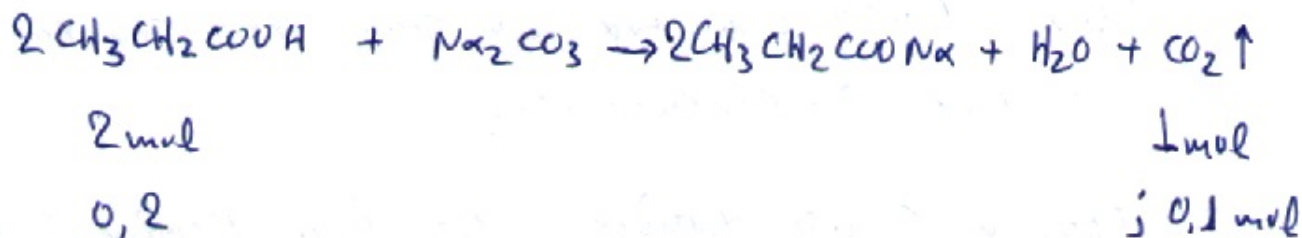 2 CH3CH2COOH + Na2CO3 → 2CH3CH2COONa + H2O + CO2 ↑
2 mol 1 mol
0,2 ; 0,1 mol